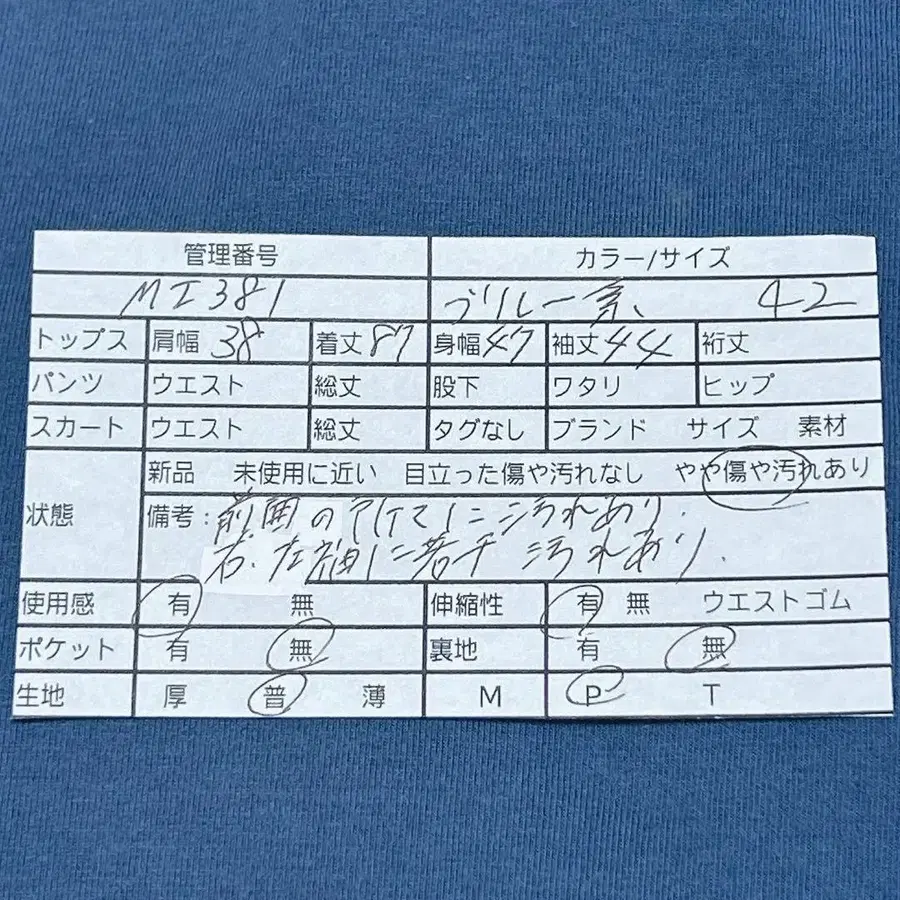 管理番号 カラー/サイズ
MI381 ブルー系、 42
トップス 肩幅 38 着丈 87 身幅 47 袖丈 44 裄丈
パンツ ウエスト 総丈 股下 ワタリ ヒップ
スカート ウエスト 総丈 タグなし ブランド サイズ 素材
新品 未使用に近い 目立った傷や汚れなし やや傷や汚れあり
状態 備考:前面の に汚れあり.
右、左袖に若干 汚れあり.
使用感 有 無 伸縮性 有 無 ウエストゴム
ポケット 有 無 裏地 有 無
生地 厚 普 薄 M P T